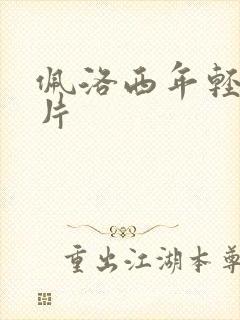 佩洛西年轻
片
重出江湖本尊